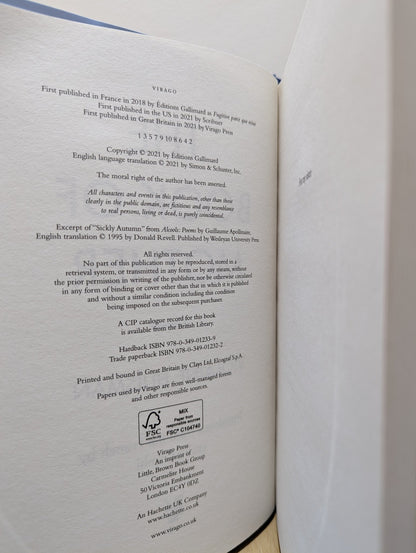 VIRAGO
First published in France in 2018 by Éditions Gallimard as Fugitive parce que reine
First published in the US in 2021 by Scribner
First published in Great Britain in 2021 by Virago Press
1 3 5 7 9 10 8 6 4 2
Copyright © 2021 by Éditions Gallimard
English language translation © 2021 by Simon & Schuster, Inc.
The moral right of the author has been asserted.
All characters and events in this publication, other than those
clearly in the public domain, are fictitious and any resemblance
to real persons, living or dead, is purely coincidental.
Excerpt of "Sickly Autumn" from Alcools: Poems by Guillaume Apollinaire,
English translation © 1995 by Donald Revell. Published by Wesleyan University Press
All rights reserved.
No part of this publication may be reproduced, stored in a
retrieval system, or transmitted in any form or by any means, without
the prior permission in writing of the publisher, nor be otherwise circulated
in any form of binding or cover other than that in which it is published
and without a similar condition including this condition
being imposed on the subsequent purchaser.
A CIP catalogue record for this book
is available from the British Library.
Hardback ISBN 978-0-349-01233-9
Trade paperback ISBN 978-0-349-01232-2
Printed and bound in Great Britain by Clays Ltd, Elcograf S.p.A.
Papers used by Virago are from well-managed forests
and other responsible sources.
MIX
Paper from
responsible sources
FSC
FSC® C104740
Virago Press
An imprint of
Little, Brown Book Group
Carmelite House
50 Victoria Embankment
London EC4Y 0DZ
An Hachette UK Company
www.hachette.co.uk
www.virago.co.uk